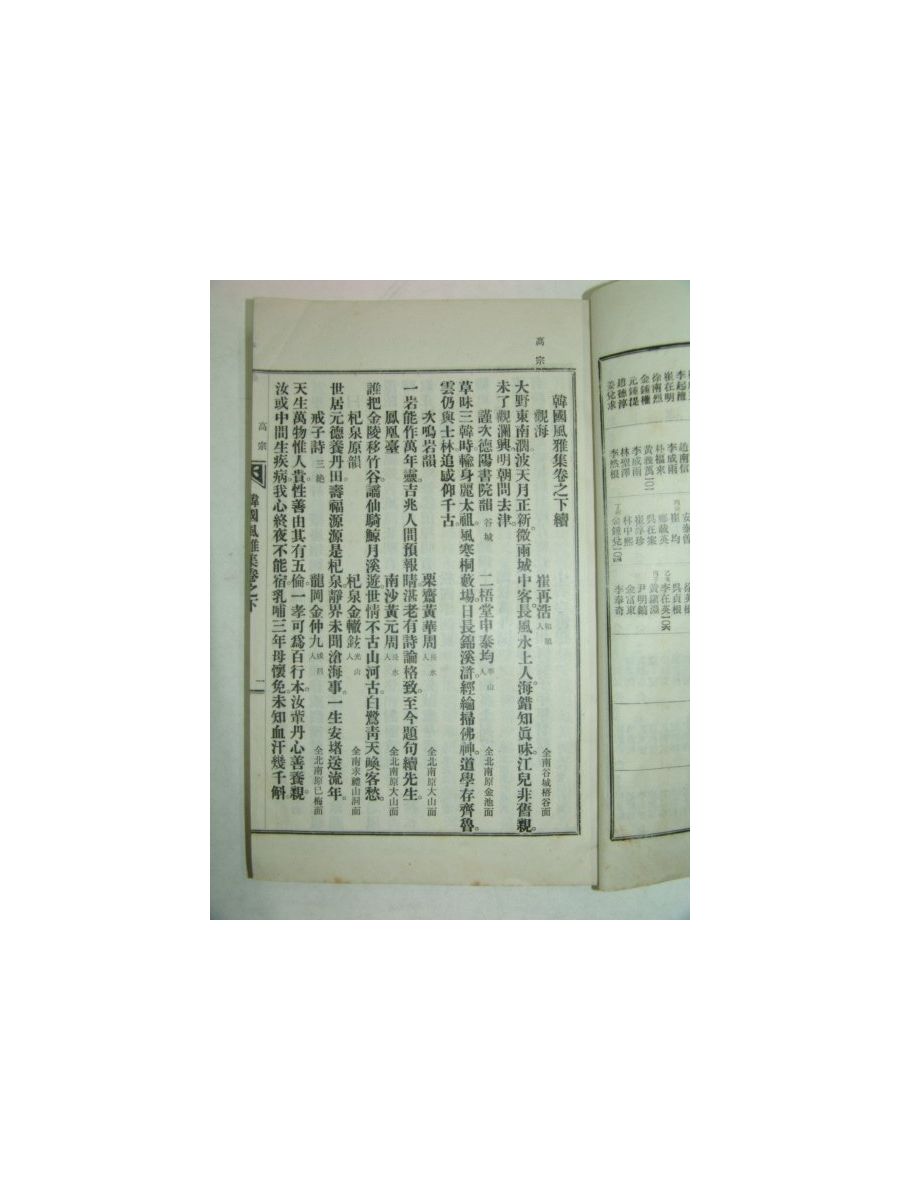 高宗
韓國風雅集卷之下續
觀海 崔再浩 人 全南谷城梧谷面
大野東南濶波天月正新微雨城中客長風水上人海錯知眞味江兒非舊親
未了觀瀾興明朝問去津
謹次德陽書院韻 谷城 二梧堂申泰均 人 全北南原金池面
草昧三韓時輸身麗太祖風寒桐藪場日長錦溪滸經綸掃佛神道學存齊魯
雲仍與士林追感仰千古
次鳴岩韻 栗齋黃華周 長水人 全北南原大山面
一岩能作萬年靈吉兆人間預報晴湛老有詩論格致至今題句續先生
鳳凰臺 南沙黃元周 長水人 全北南原大山面
誰把金陵移竹谷謫仙騎鯨月溪遊世情不古山河古白鷺靑天喚客愁
杞泉原韻 杞泉金轍鉉 光山人 全南求禮山洞面
世居元德養丹田壽福源源是杞泉靜界未聞滄海事一生安堵送流年
戒子詩 三絶 龍岡金仲九 人 全北南原已梅面
天生萬物惟人貴性善由其有五倫一孝可爲百行本汝輩丹心善養親
汝或中間生疾病我心終夜不能宿乳哺三年母懷免未知血汗幾千斛
高宗
韓國風雅集卷之下
李起
崔在明
徐南烈
金鍾權
元鍾
趙德淳
李成雨
朴福來
黃義萬101
李成南
林聖澤
李然根
崔均
鄭載英
吳在
崔淳珍
林中熙
吳貞根
李在英105
尹明
金富東
李泰奇